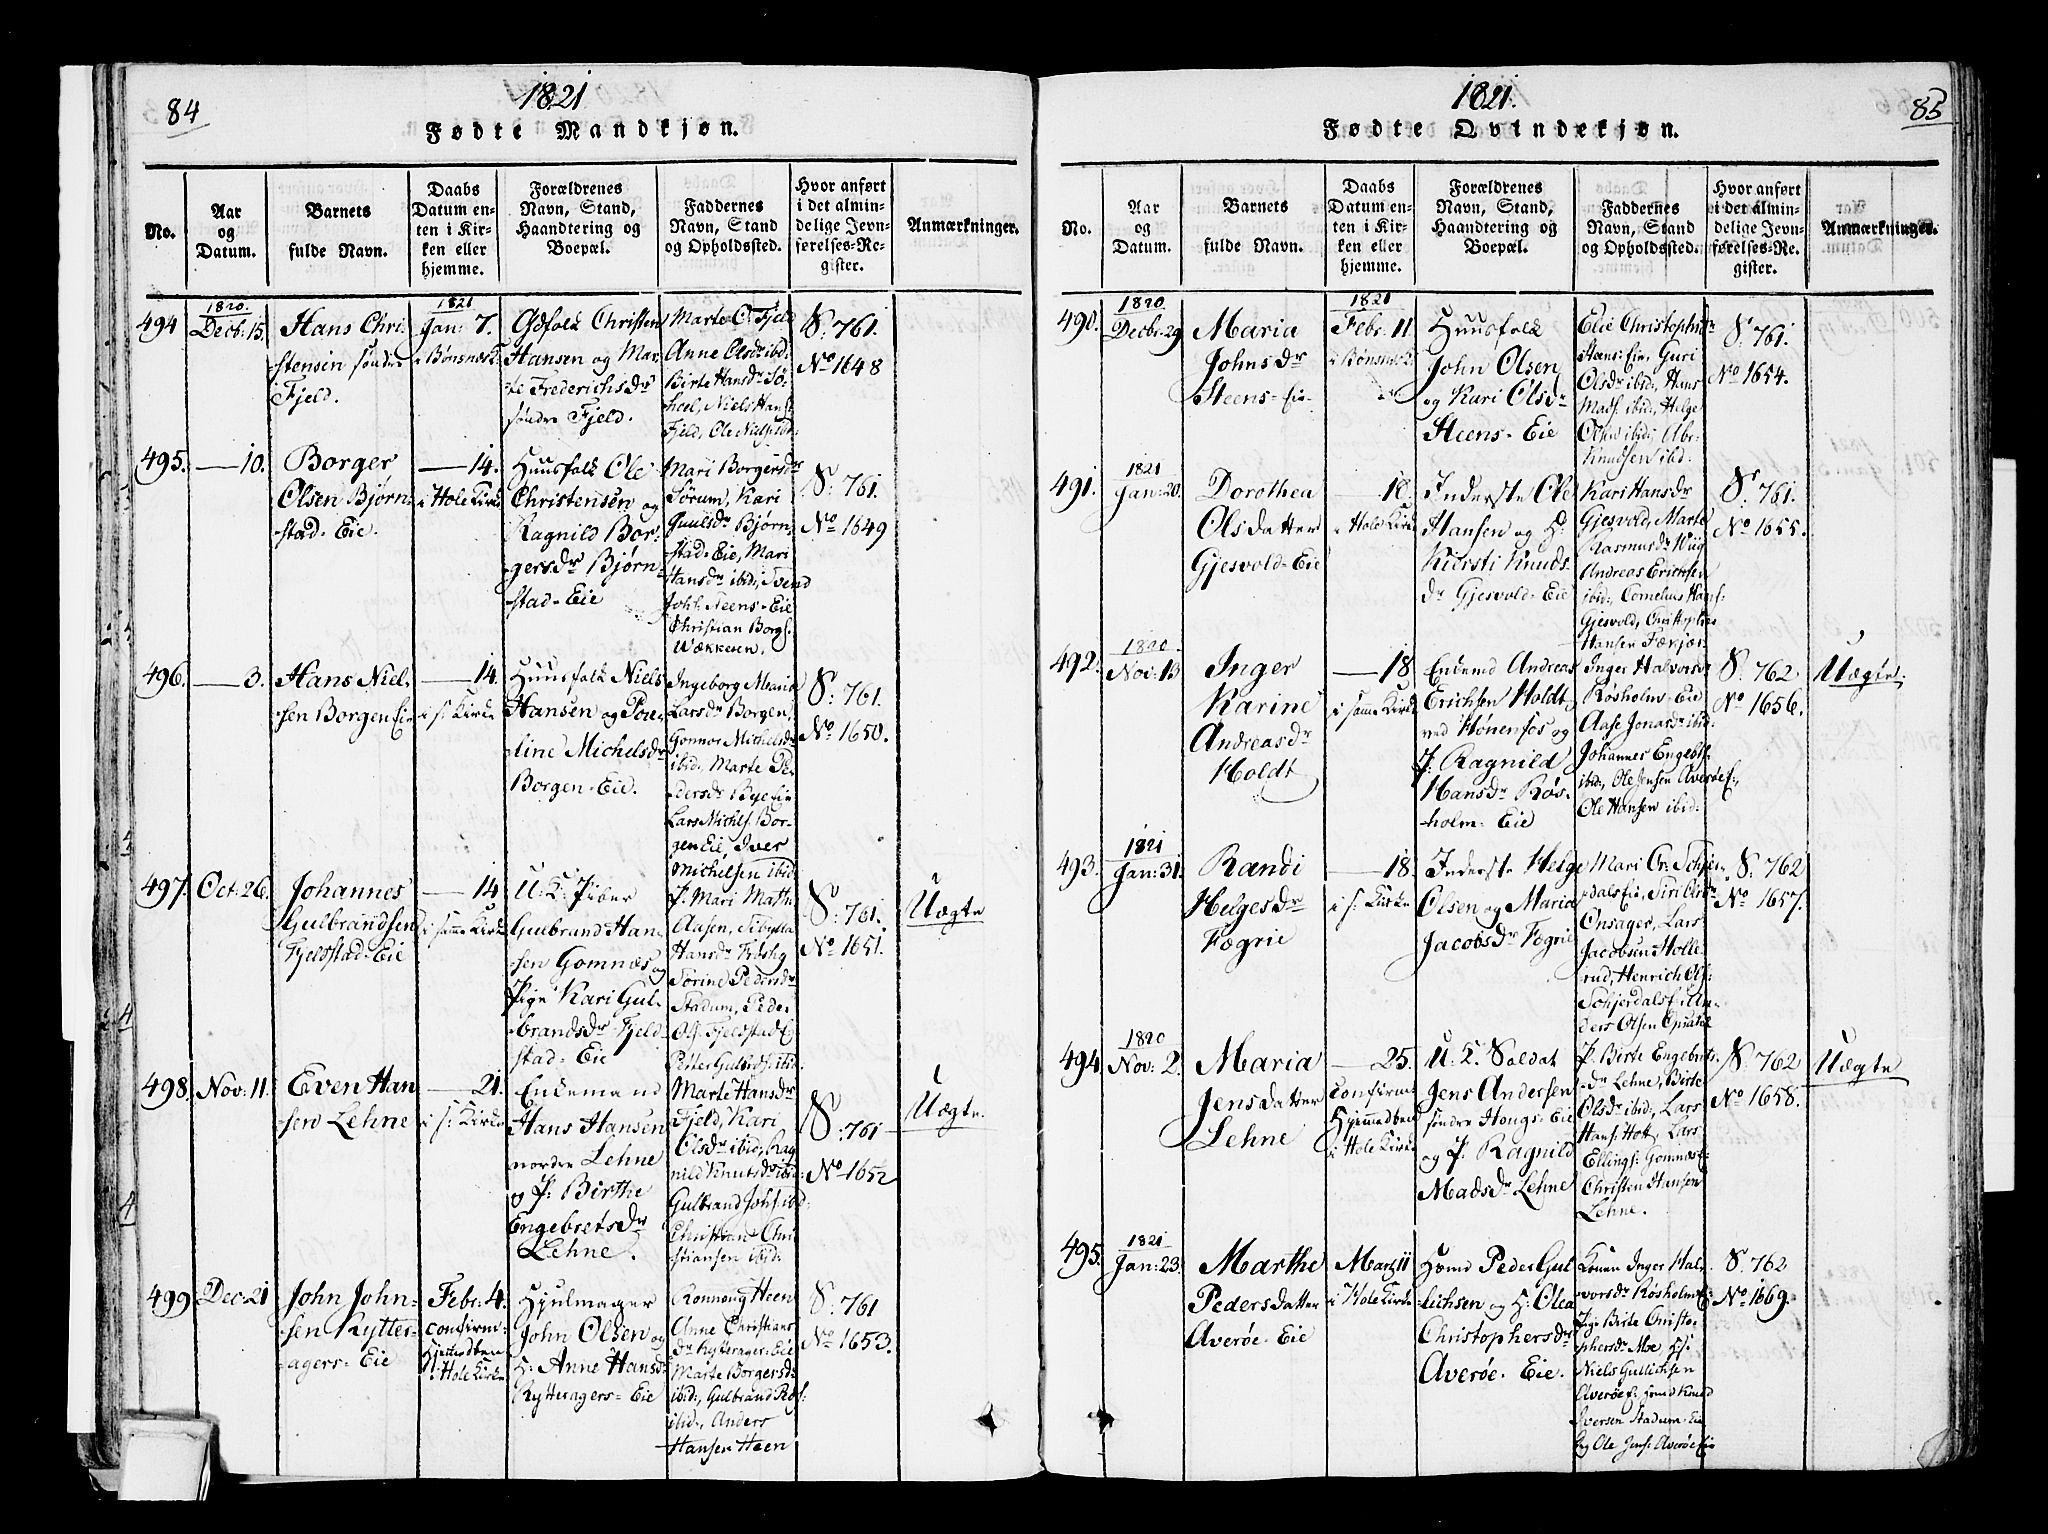 84
1821
Fødte Mandkjøn.
No.
Aar
og
Datum.
Barnets
fulde Navn.
Daabs
Datum en-
ten i Kir-
ken eller
hjemme.
Forældrenes
Navn, Stand,
Haandtering og
Boepæl.
Faddernes
Navn, Stand
og Opholdssted.
Hvor anført
i det almin-
delige Jevn-
førelses-Re-
gister.
Anmærkninger.
494
1820.
Decb: 15.
Hans Chri-
stensen søndre
Fjeld.
1821
Jan: 7.
i Bønsnæs K:
Gdfolk Christen
Hansen og Mar-
te Frederichsdr
søndre Fjeld.
Marte C. Fjeld
Anne Olsdr ibd:
Birte Hansdr Sø-
hoel, Niels Hans:
Fjeld, Ole
S: 761.
No 1648
495.
—10.
Borger
Olsen Bjørn-
stad-Eie.
—14.
i Hole Kirke
Huusfolk Ole
Christensen og
Ragnild Bor-
gersdr Bjørn-
stad-Eie
Mari Borgersdr
Sørum, Kari
Juulsdr Bjørn-
stad-Eie, Mari
Hansdr ibid:, Svend
Joh: Steens-Eie
Christian Borg:
Vækkeren.
S: 761.
No 1649
496.
—3.
Hans Niel-
sen Borgen Eie
—14.
i s: Kirke
Huusfolk Niels
Hansen og Pou-
line Michelsdr
Borgen-Eie.
Ingeborg Marie
Larsdr Borgen,
Gonnor Michelsdr
ibid:, Marte Pe-
dersdr Bye Eie
Lars Michels: Bor-
gen Eie, Iver
Michelsen ibid
S: 761.
No 1650.
497.
Oct: 26.
Johannes
Gulbrandsen
Fjeldstad-Eie
—14
i samme Kirke
U: K: Piber
Gulbrand Han-
sen Gomnæs og
Pige Kari Gul-
brandsdr Fjeld-
stad-Eie
P. Mari Math:
Aasen, Sibylla
Hansdr Frøshg
Sorine Pedersdr
Stadum, Peder
Ols: Fjeldstad E:
Peter Gulbrds: ibid
S: 761.
No 1651.
Uægte
498.
Nov: 11.
Even Han-
sen Lehne
—21.
i s: Kirke
Enkemand
Hans Hansen
nordre Lehne
og P: Birthe
Engebretsdr
Lehne.
Marte Hansdr
Fjeld, Kari
Olsdr ibid, Rag-
nild Knutsdr ibid:
Gulbrand Johs: ibd:
Christian Chri-
stiansen ibid:
S: 761
No 1652
Uægte.
499
Dec: 21
John John-
sen Rytter-
agers-Eie
Febr: 4.
confirm:
Hjemmedben
i Hole Kirke
Hjulmager
John Olsen og
H: Anne Hansdr
Rytteragers-Eie
Ronnoug Heen
Anne Christians
dr Rytterager-Eie
Marte Borgersdr
ibid:, Gulbrand
ibid:, Anders
Hansen Heen
S: 761
No 1653.
1821.
85
Fødte Qvindekjøn.
No.
Aar
og
Datum.
Barnets
fulde Navn.
Daabs
Datum en-
ten i Kir-
ken eller
hjemme.
Forældrenes
Navn, Stand,
Haandtering og
Boepæl.
Faddernes
Navn, Stand
og Opholdssted.
Hvor anført
i det almin-
delige Jevn-
førelses-Re-
gister.
Anmærkninger.
490.
1820
Decbr: 29
Maria
Johnsdr
Steens-Eie
1821
Febr: 11
i Bønsnæs K:
Huusfolk
John Olsen
og Kari Olsdr
Steens-Eie
Elie Christophersdr
Steens: Eie, Guri
Olsdr ibid:, Hans
Mads: ibid:, Helge
Olsen ibid:,
Knudsen ibd:
S: 761.
No 1654.
491.
1821
Jan: 20.
Dorothea
Olsdatter
Gjesvold-Eie
—18.
i Hole Kirke
Inderste Ole
Hansen og H:
Kiersti Knuds-
dr Gjesvold-Eie
Kari Hansdr
Gjesvold, Marte
Rasmusdr Wiig
Andreas Ericksen
ibid:, Cornelius Hans:
Gjesvold, Christopher
Hansen Færkjær
S: 761.
No 1655.
492.
1820
Nov: 13
Inger
Karine
Andreasdr
Holdt
—18
i samme Kirke
Enkemd Andreas
Erichsen Holdt
ved Hønenfos og
P. Ragnild
Hansdr Røs-
holm-Eie
Inger Halvorsdr
Røsholm-Eie
Aase Jonasdr ibid.
Johannes Engebts:
ibid:, Ole Jensen Averøe E:,
Ole Hansen ibid:
S: 762
No 1656.
Uægte.
493.
1821
Jan: 31.
Randi
Helgesdr
Fægrie
—18.
i s: Kirke
Inderste Helge
Olsen og Maria
Jacobsdr Fægrie
Mari Cr: Schjer-
dals Eie, Siri
Onsager, Lars
Jacobsen Holle-
rud, Henrich Ols:
Schjerdals E: An-
ders Olsen Opsatel
S: 762
No 1657.
494
1820
Nov: 2.
Maria
Jensdatter
Lehne
—25.
confirm:
Hjemmedben
i Hole Kirke
U: K. Soldat
Jens Andersen
søndre Hougs-Eie
og P. Ragnild
Madsdr Lehne
P. Birte Engebrets-
dr Lehne, Birte
Olsdr ibid:, Lars
Hans: Hott, Lars
Ellings: Gomnæs E:
Christen Hansen
Lehne.
S: 762
No 1658.
Uægte
495.
1821
Jan: 23.
Marthe
Pedersdatter
Averøe-Eie
Marz 11
i Hole Kirke
Hmd Peder Gul-
lichsen og H: Olea
Christophersdr
Averøe-Eie.
Konen Inger Hal-
vorsdr Røsholm E:
Pige Birte Christo-
phersdr Moe,
Niels Gullichsen
Averøe E: Hmd Knud
Iversen Stadum-Eie
og Ole Jens: Averøe Eie
S: 762
No 1669.